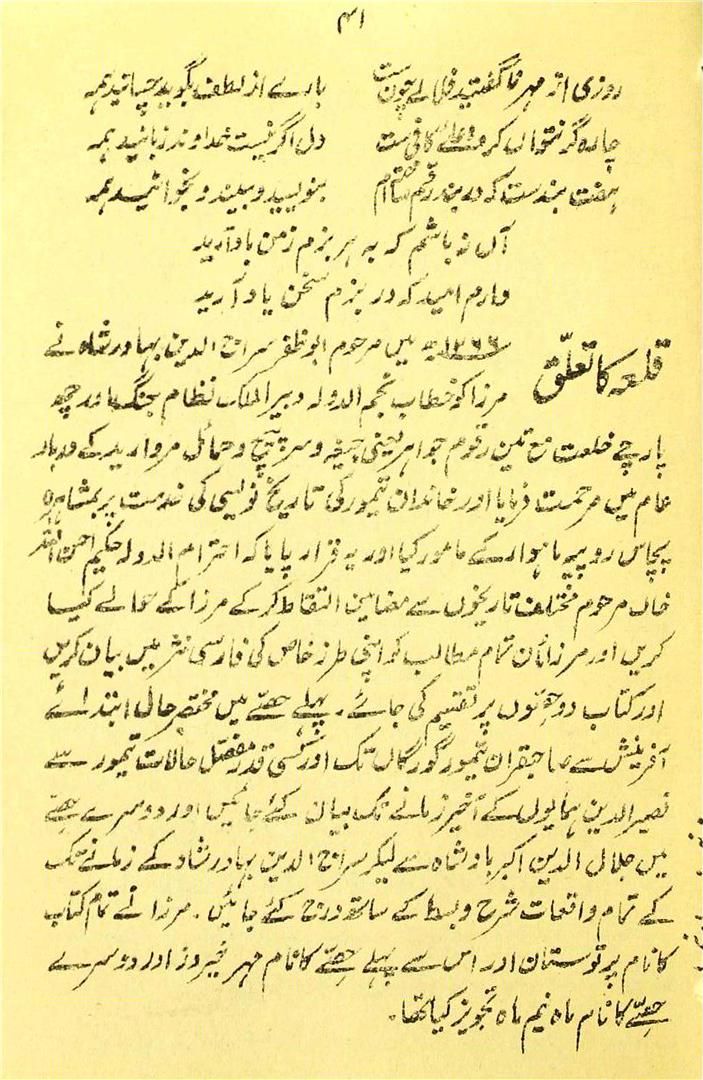 ۴۱
روزی از مہر نگفتید فلانے چون ست بارے از لطف بگویید چسانید ہمہ
چارہ گر نتواں کرد دعائے کافی ست دل اگر نیست خداوند زبانید ہمہ
ہفت بندست کہ در بند رقم ساختہ ام بنویسید و ببیند و بخوانید ہمہ
آں نہ باشم کہ بہ ہر بزم زمن یاد آرید
دارم امید کہ در بزم سخن یاد آرید
قلعہ کا تعلق ۱۲۶۶ھ میں مرحوم ابوظفر سراج الدین بہادر شاہ نے
مرزا کو خطاب نجم الدولہ دبیر الملک نظام جنگ اور چھ
پارچے خلعت مع تین رقوم جواہر یعنی جیغہ و سرپیچ و حمائل مروارید کے دربار
عام میں مرحمت فرمایا اور خاندان تیمور کی تاریخ نویسی کی خدمت پر بمشاہرہ
پچاس روپیہ ماہوار کے مامور کیا اور یہ قرار پایا کہ احترام الدولہ حکیم احسن اللہ
خاں مرحوم مختلف تاریخوں سے مضامین التقاط کرکے مرزا کے حوالے کیا
کریں اور مرزا اُن تمام مطالب کو اپنی طرز خاص کی فارسی نثر میں بیان کریں
اور کتاب دو حصّوں پر تقسیم کی جائے۔ پہلے حصّے میں مختصر حال ابتدائے
آفرینش سے صاحبقران تیمور گورگاں تک اور کسی قدر مفصّل حالات تیمور سے
نصیر الدین ہمایوں کے اخیر زمانے تک بیان کئے جائیں اور دوسرے حصّے
میں جلال الدین اکبر بادشاہ سے لیکر سراج الدین بہادر شاہ کے زمانے تک
کے تمام واقعات شرح و بسط کے ساتھ درج کئے جائیں۔ مرزا نے تمام کتاب
کا نام پرتوستان اور اس سے پہلے حصّے کا نام مہر نیمروز اور دوسرے
حصّے کا نام ماہ نیم ماہ تجویز کیا تھا۔